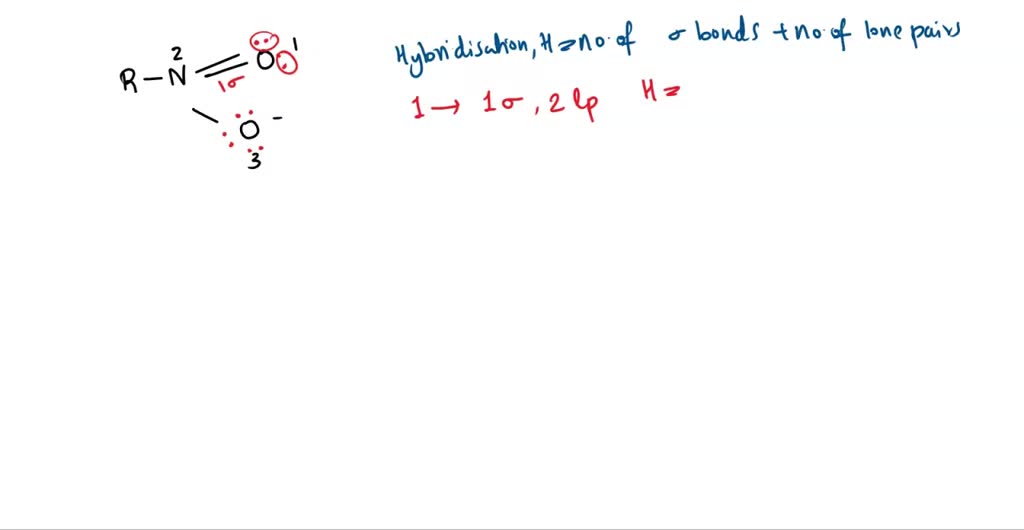 Hybridisation, H = no. of σ bonds + no. of lone pairs
2
R–N=O 1
1σ
1 → 1σ, 2 lp H =
O -
3